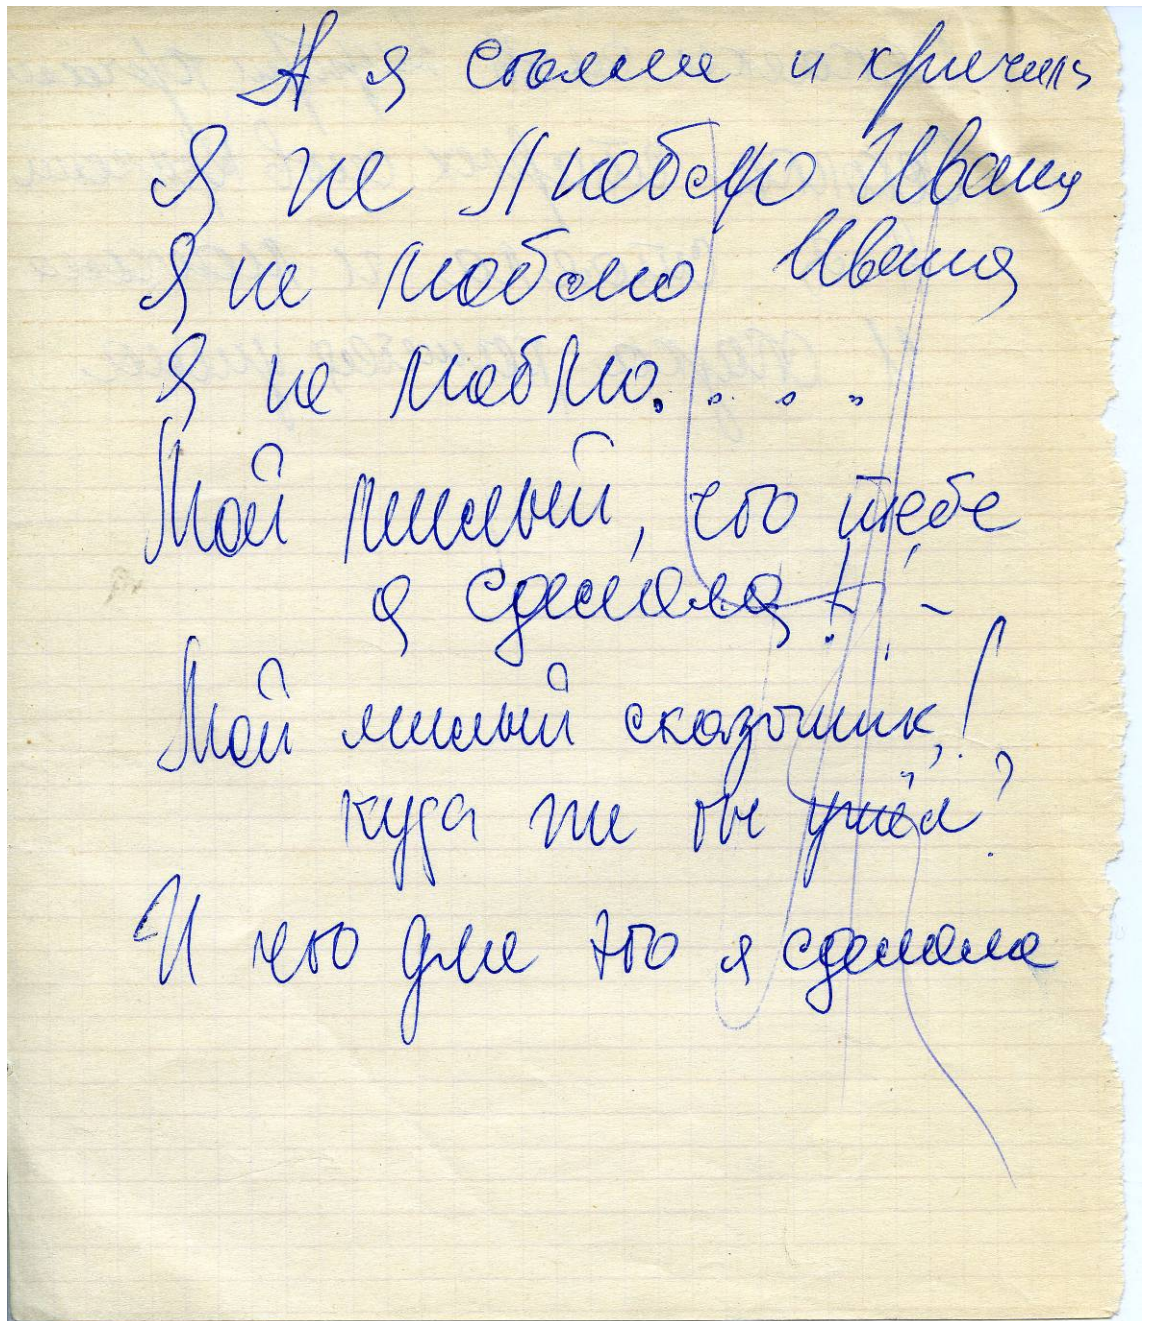 А я стояла и кричала
Я не люблю Ивана
Я не люблю Ивана
Я не люблю. . . .
Мой милый, что тебе
я сделала! ! -
Мой милый сказочник,!
куда же ты ушёл?
И что для это я сделала